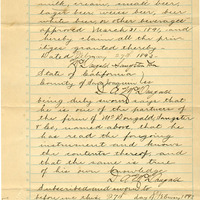 milk, cream, small beer,
lager beer, weiss beer,
white beer or other beverages
approved March 31, 1891, and
hereby claim all the privi-
leges granted thereby.
Dated 1893.
State of California
County of San Joaquin } ss
being duly sworn says that
he is one of the partners of
the firm of McDougald, Sangster
& Co, named above, that he
has read the foregoing
instrument and knows
the contents thereof and
that the same is true
of his own knowledge
Subscribed and sworn to
before me this 27th day of